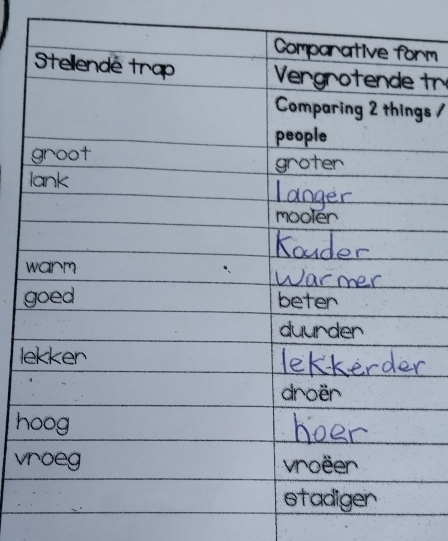 Comparative form
Stellende trap Vergrotende tr
Comparing 2 things /
people
groot groter
lank Langer
mooier
Kouder
warm Warmer
goed beter
duurder
lekker lekkerder
droër
hoog hoer
vroeg vroëer
stadiger